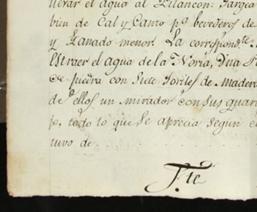 llevar el agua al Pilancon. Targea
bien de Cal y Canto p.ª bevederos de
y Ganado menor. La correspond.te
Estraer el agua de la Noria, Una P
de piedra con Siete Toriles de Madera
de ellos un mirador con sus
todo lo que Se aprecia Segun e
tuvo de
F.te